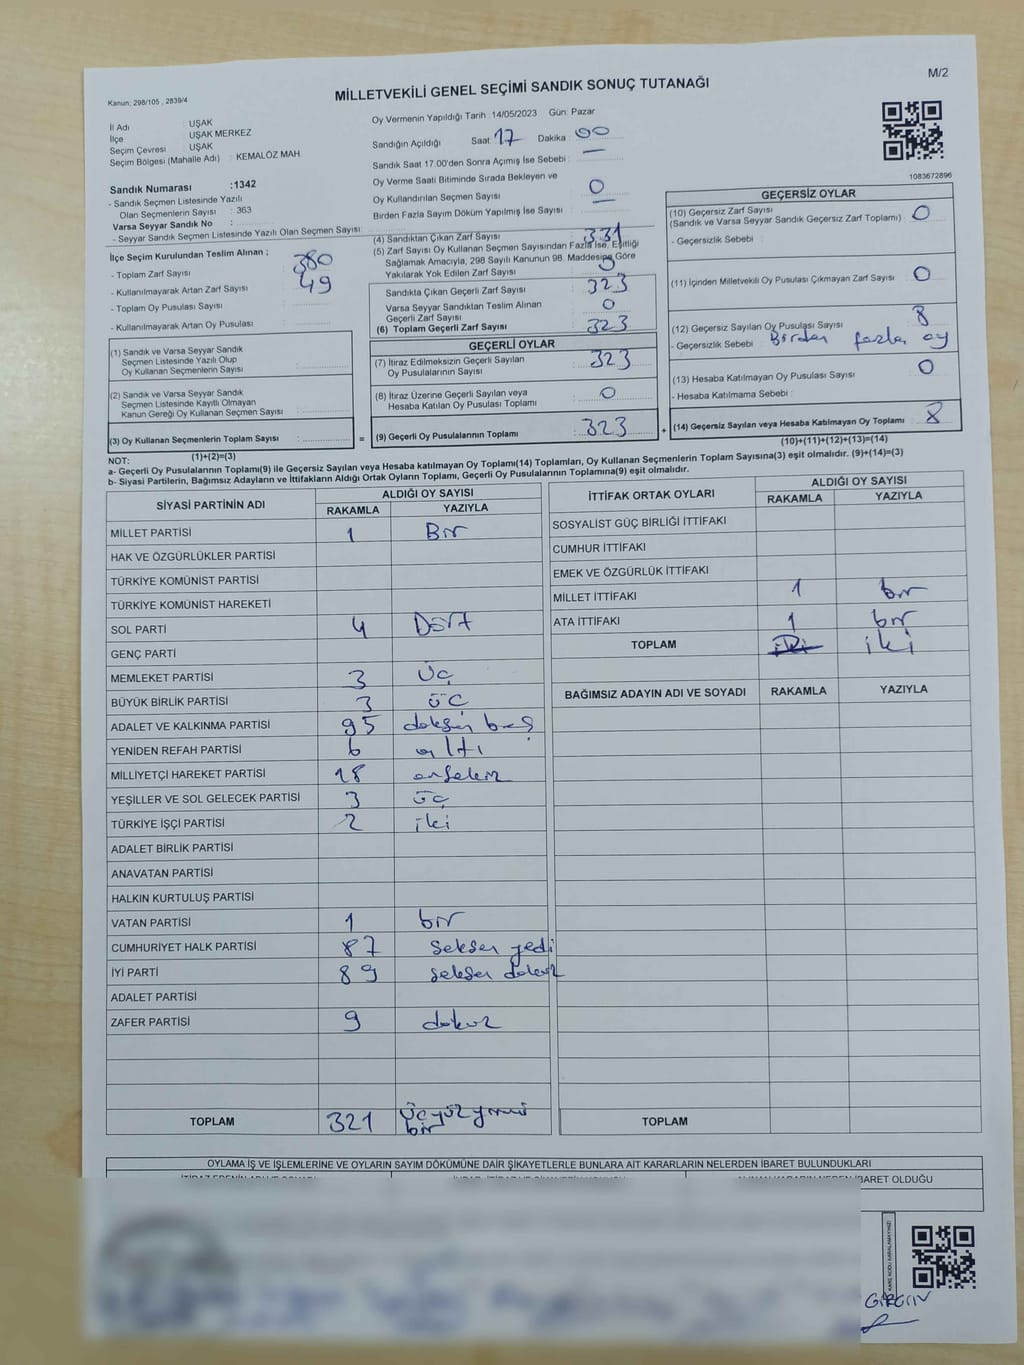 M/2
Kanun: 298/105 , 2839/4
MİLLETVEKİLİ GENEL SEÇİMİ SANDIK SONUÇ TUTANAĞI
İl Adı : UŞAK
İlçe : UŞAK MERKEZ
Seçim Çevresi : UŞAK
Seçim Bölgesi (Mahalle Adı) : KEMALÖZ MAH.
Sandık Numarası :1342
- Sandık Seçmen Listesinde Yazılı
Olan Seçmenlerin Sayısı : 363
Varsa Seyyar Sandık No :
- Seyyar Sandık Seçmen Listesinde Yazılı Olan Seçmen Sayısı :
İlçe Seçim Kurulundan Teslim Alınan ;
- Toplam Zarf Sayısı : 380
- Kullanılmayarak Artan Zarf Sayısı : 49
- Toplam Oy Pusulası Sayısı :
- Kullanılmayarak Artan Oy Pusulası :
(1) Sandık ve Varsa Seyyar Sandık
Seçmen Listesinde Yazılı Olup
Oy Kullanan Seçmenlerin Sayısı :
(2) Sandık ve Varsa Seyyar Sandık
Seçmen Listesinde Kayıtlı Olmayan
Kanun Gereği Oy Kullanan Seçmen Sayısı :
(3) Oy Kullanan Seçmenlerin Toplam Sayısı :
(1)+(2)=(3)
Oy Vermenin Yapıldığı Tarih :14/05/2023 Gün: Pazar
Sandığın Açıldığı Saat: 17 Dakika : 00
Sandık Saat 17.00'den Sonra Açımış İse Sebebi :
Oy Verme Saati Bitiminde Sırada Bekleyen ve
Oy Kullandırılan Seçmen Sayısı : 0
Birden Fazla Sayım Döküm Yapılmış İse Sayısı :
(4) Sandıktan Çıkan Zarf Sayısı : 331
(5) Zarf Sayısı Oy Kullanan Seçmen Sayısından Fazla İse, Eşitliği
Sağlamak Amacıyla, 298 Sayılı Kanunun 98. Maddesine Göre
Yakılarak Yok Edilen Zarf Sayısı :
Sandıkta Çıkan Geçerli Zarf Sayısı : 323
Varsa Seyyar Sandıktan Teslim Alınan
Geçerli Zarf Sayısı : 0
(6) Toplam Geçerli Zarf Sayısı : 323
GEÇERLİ OYLAR
(7) İtiraz Edilmeksizin Geçerli Sayılan
Oy Pusulalarının Sayısı : 323
(8) İtiraz Üzerine Geçerli Sayılan veya
Hesaba Katılan Oy Pusulası Toplamı : 0
= (9) Geçerli Oy Pusulalarının Toplamı : 323
1083672896
GEÇERSİZ OYLAR
(10) Geçersiz Zarf Sayısı
(Sandık ve Varsa Seyyar Sandık Geçersiz Zarf Toplamı) : 0
- Geçersizlik Sebebi :
(11) İçinden Milletvekili Oy Pusulası Çıkmayan Zarf Sayısı : 0
(12) Geçersiz Sayılan Oy Pusulası Sayısı : 8
- Geçersizlik Sebebi : Birden fazla oy
(13) Hesaba Katılmayan Oy Pusulası Sayısı : 0
- Hesaba Katılmama Sebebi :
+ (14) Geçersiz Sayılan veya Hesaba Katılmayan Oy Toplamı : 8
(10)+(11)+(12)+(13)=(14)
NOT:
a- Geçerli Oy Pusulalarının Toplamı(9) ile Geçersiz Sayılan veya Hesaba katılmayan Oy Toplamı(14) Toplamları, Oy Kullanan Seçmenlerin Toplam Sayısına(3) eşit olmalıdır. (9)+(14)=(3)
b- Siyasi Partilerin, Bağımsız Adayların ve İttifakların Aldığı Ortak Oyların Toplamı, Geçerli Oy Pusulalarının Toplamına(9) eşit olmalıdır.
SİYASİ PARTİNİN ADI ALDIĞI OY SAYISI
RAKAMLA YAZIYLA
MİLLET PARTİSİ 1 Bir
HAK VE ÖZGÜRLÜKLER PARTİSİ
TÜRKİYE KOMÜNİST PARTİSİ
TÜRKİYE KOMÜNİST HAREKETİ
SOL PARTİ 4 Dört
GENÇ PARTİ
MEMLEKET PARTİSİ 3 Üç
BÜYÜK BİRLİK PARTİSİ 3 üç
ADALET VE KALKINMA PARTİSİ 95 doksan beş
YENİDEN REFAH PARTİSİ 6 altı
MİLLİYETÇİ HAREKET PARTİSİ 18 onsekiz
YEŞİLLER VE SOL GELECEK PARTİSİ 3 üç
TÜRKİYE İŞÇİ PARTİSİ 2 iki
ADALET BİRLİK PARTİSİ
ANAVATAN PARTİSİ
HALKIN KURTULUŞ PARTİSİ
VATAN PARTİSİ 1 bir
CUMHURİYET HALK PARTİSİ 87 seksen yedi
İYİ PARTİ 89 seksen dokuz
ADALET PARTİSİ
ZAFER PARTİSİ 9 dokuz
TOPLAM 321 üçyüz yirmi
bir
İTTİFAK ORTAK OYLARI ALDIĞI OY SAYISI
RAKAMLA YAZIYLA
SOSYALİST GÜÇ BİRLİĞİ İTTİFAKI
CUMHUR İTTİFAKI
EMEK VE ÖZGÜRLÜK İTTİFAKI
MİLLET İTTİFAKI 1 bir
ATA İTTİFAKI 1 bir
TOPLAM iki
BAĞIMSIZ ADAYIN ADI VE SOYADI RAKAMLA YAZIYLA
TOPLAM
OYLAMA İŞ VE İŞLEMLERİNE VE OYLARIN SAYIM DÖKÜMÜNE DAİR ŞİKAYETLERLE BUNLARA AİT KARARLARIN NELERDEN İBARET BULUNDUKLARI
İBARET OLDUĞU